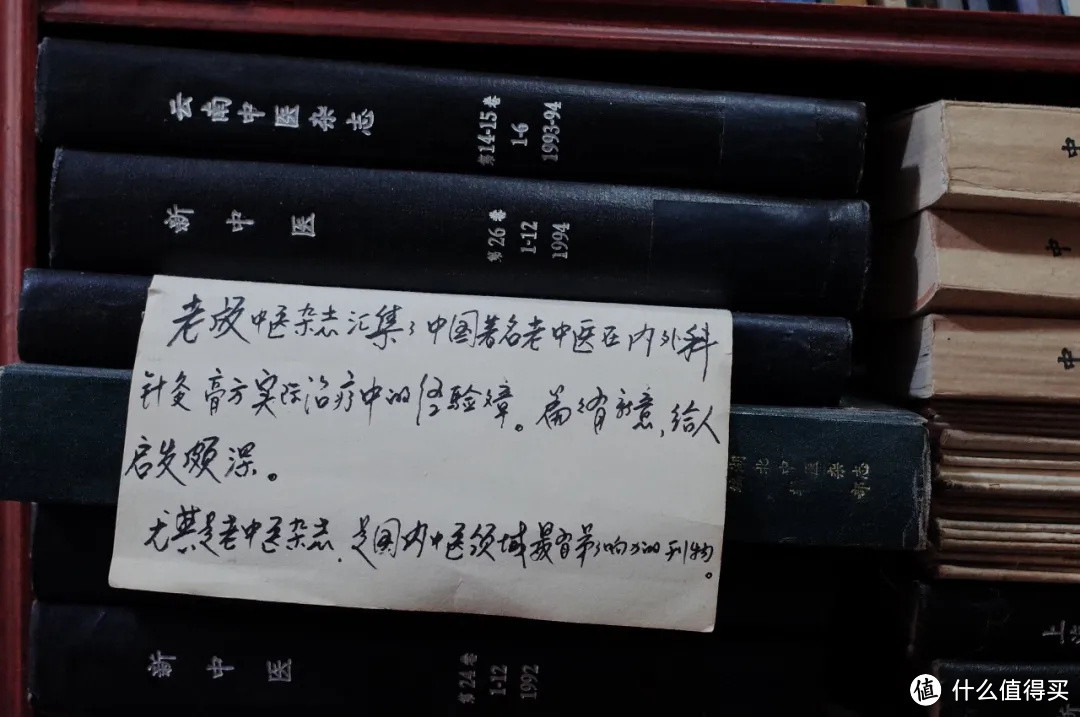 云南中医杂志
第14-15卷
1-6
1993-94
新中医
第26卷
1-12
1994
老版中医杂志汇集了中国著名老中医在内外科
针灸膏方实际治疗中的经验文章。篇篇有新意，给人
启发颇深。
尤其是老中医杂志，是国内中医领域最有影响力的刊物。
湖北中医杂志
新中医
第24卷
1-12
1992
中
中
中
上
值 什么值得买